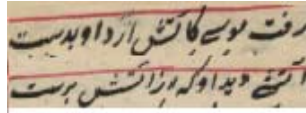 رفت موسی کاتش آرد او بدست
آتشی دید او که از آتش برست